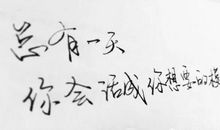 总有一天
你会活成你想要的样